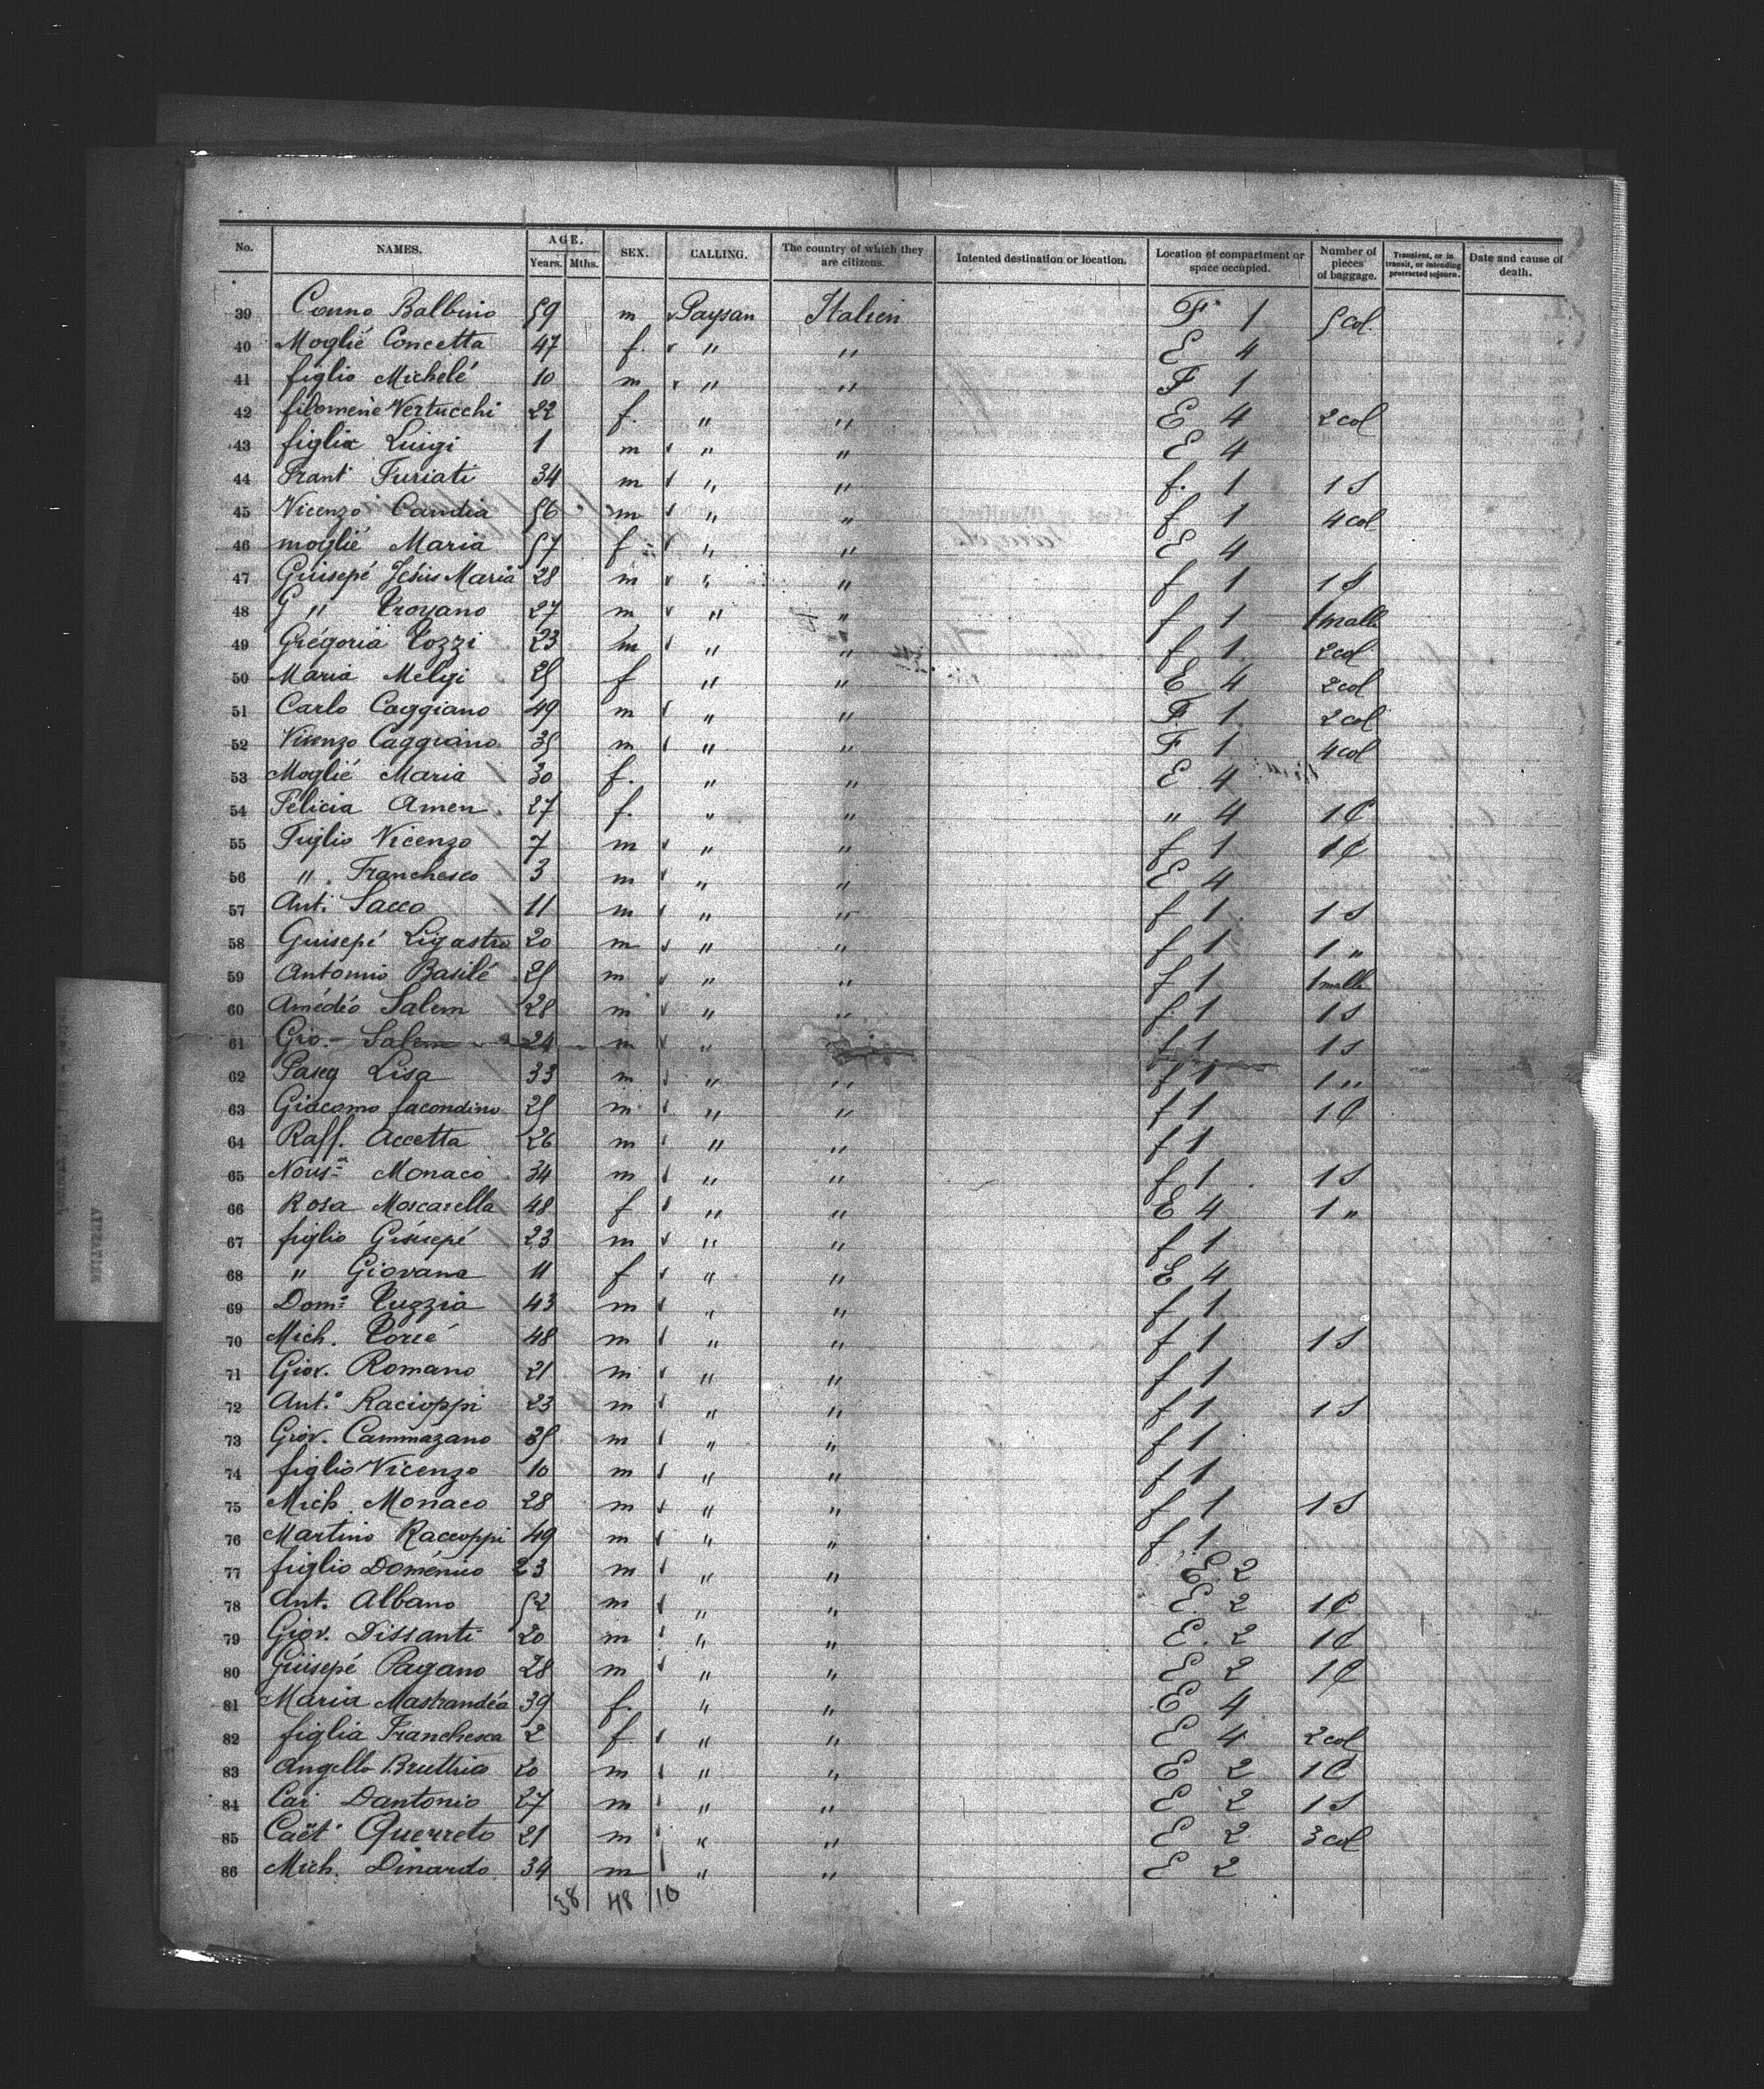 No. NAMES. AGE. Years. Mths. SEX. CALLING. The country of which they are citizens. Intented destination or location. Location of compartment or space occupied. Number of pieces of baggage. Transient, or in transit, or intending protracted sojourn. Date and cause of death.
39 Conno Balbino 59 m Paysan Italien F 1 5 col.
40 Moglié Concetta 47 f. " " E 4
41 figlio Michelé 10 m " " F 1
42 filomene Vertucchi 22 f. " " E 4 2 col
43 figlia Luigi 1 m " " E 4
44 Frant Furiati 34 m " " f. 1 1 S
45 Vicenzo Candia 56 m " " f 1 4 col
46 moglié Maria 57 f " " E 4
47 Guisepé Jésus Maria 28 m " " f 1 1 S
48 G " Troyano 27 m " " f 1 1 malle
49 Grégoria Tozzi 23 m " " f 1 2 col
50 Maria Melgi 25 f " " E 4 2 col
51 Carlo Caggiano 49 m " " F 1 2 col
52 Vicenzo Caggiano 35 m " " F 1 4 col
53 Moglié Maria 30 f. " " E 4
54 Felicia Amen 27 f. " " " 4 1 C
55 Figlio Vicenzo 7 m " " f 1 1 C
56 " Franchesco 3 m " " E 4
57 Ant. Sacco 11 m " " f 1 1 S
58 Guisepé Ligastro 20 m " " f 1 1 "
59 Antonio Basilé 25 m " " f 1 1 malle
60 Amédéo Salem 28 m " " f 1 1 S
61 Gio. Salem 24 m " f 1 1 S
62 Pasq Lisa 33 m " " f 1 1 "
63 Giacomo facondino 25 m " " f 1 1 C
64 Raff. Accetta 26 m " " f 1
65 Monaco 34 m " " f 1 1 S
66 Rosa Moscarella 48 f " " E 4 1 "
67 figlio Giśuepé 23 m " " f 1
68 " Giovana 11 f " " E 4
69 Dom. Tuzzia 43 m " " f 1
70 Mich. 48 m " " f 1 1 S
71 Giov. Romano 21 m " " f 1
72 Ant.° Racioppi 23 m " " f 1 1 S
73 Giov. Cammazano 35 m " " f 1
74 figlio Vicenzo 10 m " " f 1
75 Mich. Monaco 28 m " " f 1 1 S
76 Martino Raccoppi 49 m " " f 1
77 figlio Doménico 23 m " " E 2
78 Ant. Albano 52 m " " E 2 1 C
79 Giov. Dissanti 20 m " " E. 2 1 C
80 Guisepé Pagano 28 m " " E 2 1 C
81 Maria Mastrandéa 39 f. " " E 4
82 figlia Franchesca 2 f. " " E 4 2 col
83 Angello Bruttria 20 m " " E 2 1 C
84 Car Dantonio 27 m " " E 2 1 S
85 Caët Querreto 21 m " " E 2 3 col
86 Mich. Dinardo 34 m " " E 2
38 48 10